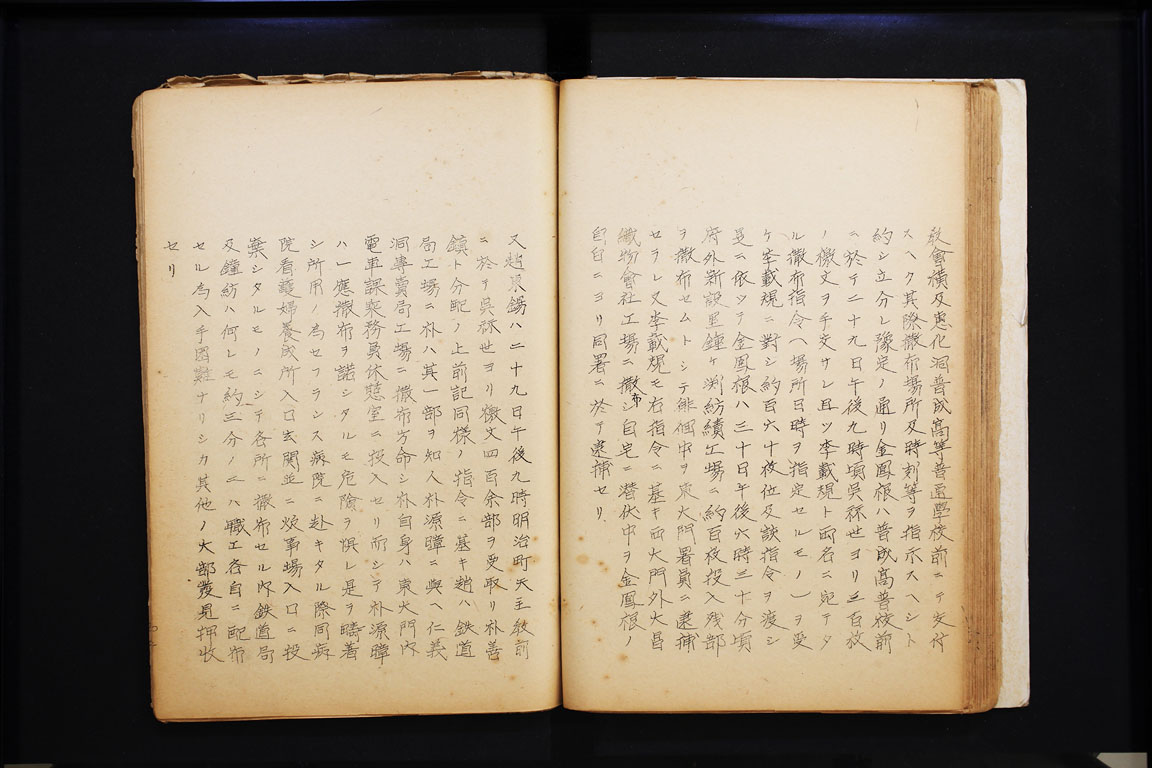 教會橫及惠化洞普成高等普通學校前ニテ交付
スヘク其際撒布場所及時刻等ヲ指示スヘシト
約シ立分レ豫定ノ通リ金鳳根ハ普成高普校前
ニ於テ二十九日午後九時頃吳秾世ヨリ三百枚
ノ檄文ヲ手交サレ且ツ李載規ト両名ニ宛テタ
ル撒布指令(場所日時ヲ指定セルモノ)ヲ受
ケ李載規ニ對シ約百六十枚位及該指令ヲ渡シ
是ニ依ツテ金鳳根ハ三十日午後六時三十分頃
府外新設里鐘ケ渕紡績工場ニ約百枚投入残部
ヲ撒布セムトシテ徘徊中ヲ東大門署員ニ逮捕
セラレ又李載規モ右指令ニ基キ西大門外大昌
織物會社工場ニ撒布シ自宅ニ潜伏中ヲ金鳳根ノ
自白ニヨリ同署ニ於テ逮捕セリ
又趙東錫ハ二十九日午後九時明治町天主教前
ニ於テ吳秾世ヨリ檄文四百余部ヲ受取リ朴善
鎮ト分配ノ上前記同様ノ指令ニ基キ趙ハ鉄道
局工場ニ朴ハ其一部ヲ知人朴源暲ニ與ヘ仁義
洞専賣局工場ニ撒布方命シ朴自身ハ東大門内
電車課乗務員休憩室ニ投入セリ而シテ朴源暲
ハ一應撒布ヲ諾シタルモ危險ヲ惧レ是ヲ躊著
シ所用ノ為セフランス病院ニ赴キタル際同病
院看護婦養成所入口玄関並ニ炊事場入口ニ投
棄シタルモノニシテ各所ニ撒布セル内鉄道局
及鐘紡ハ何レモ約三分ノ二ハ職工各自ニ配布
セル為入手困難ナリシカ其他ノ大部發見押收
セリ